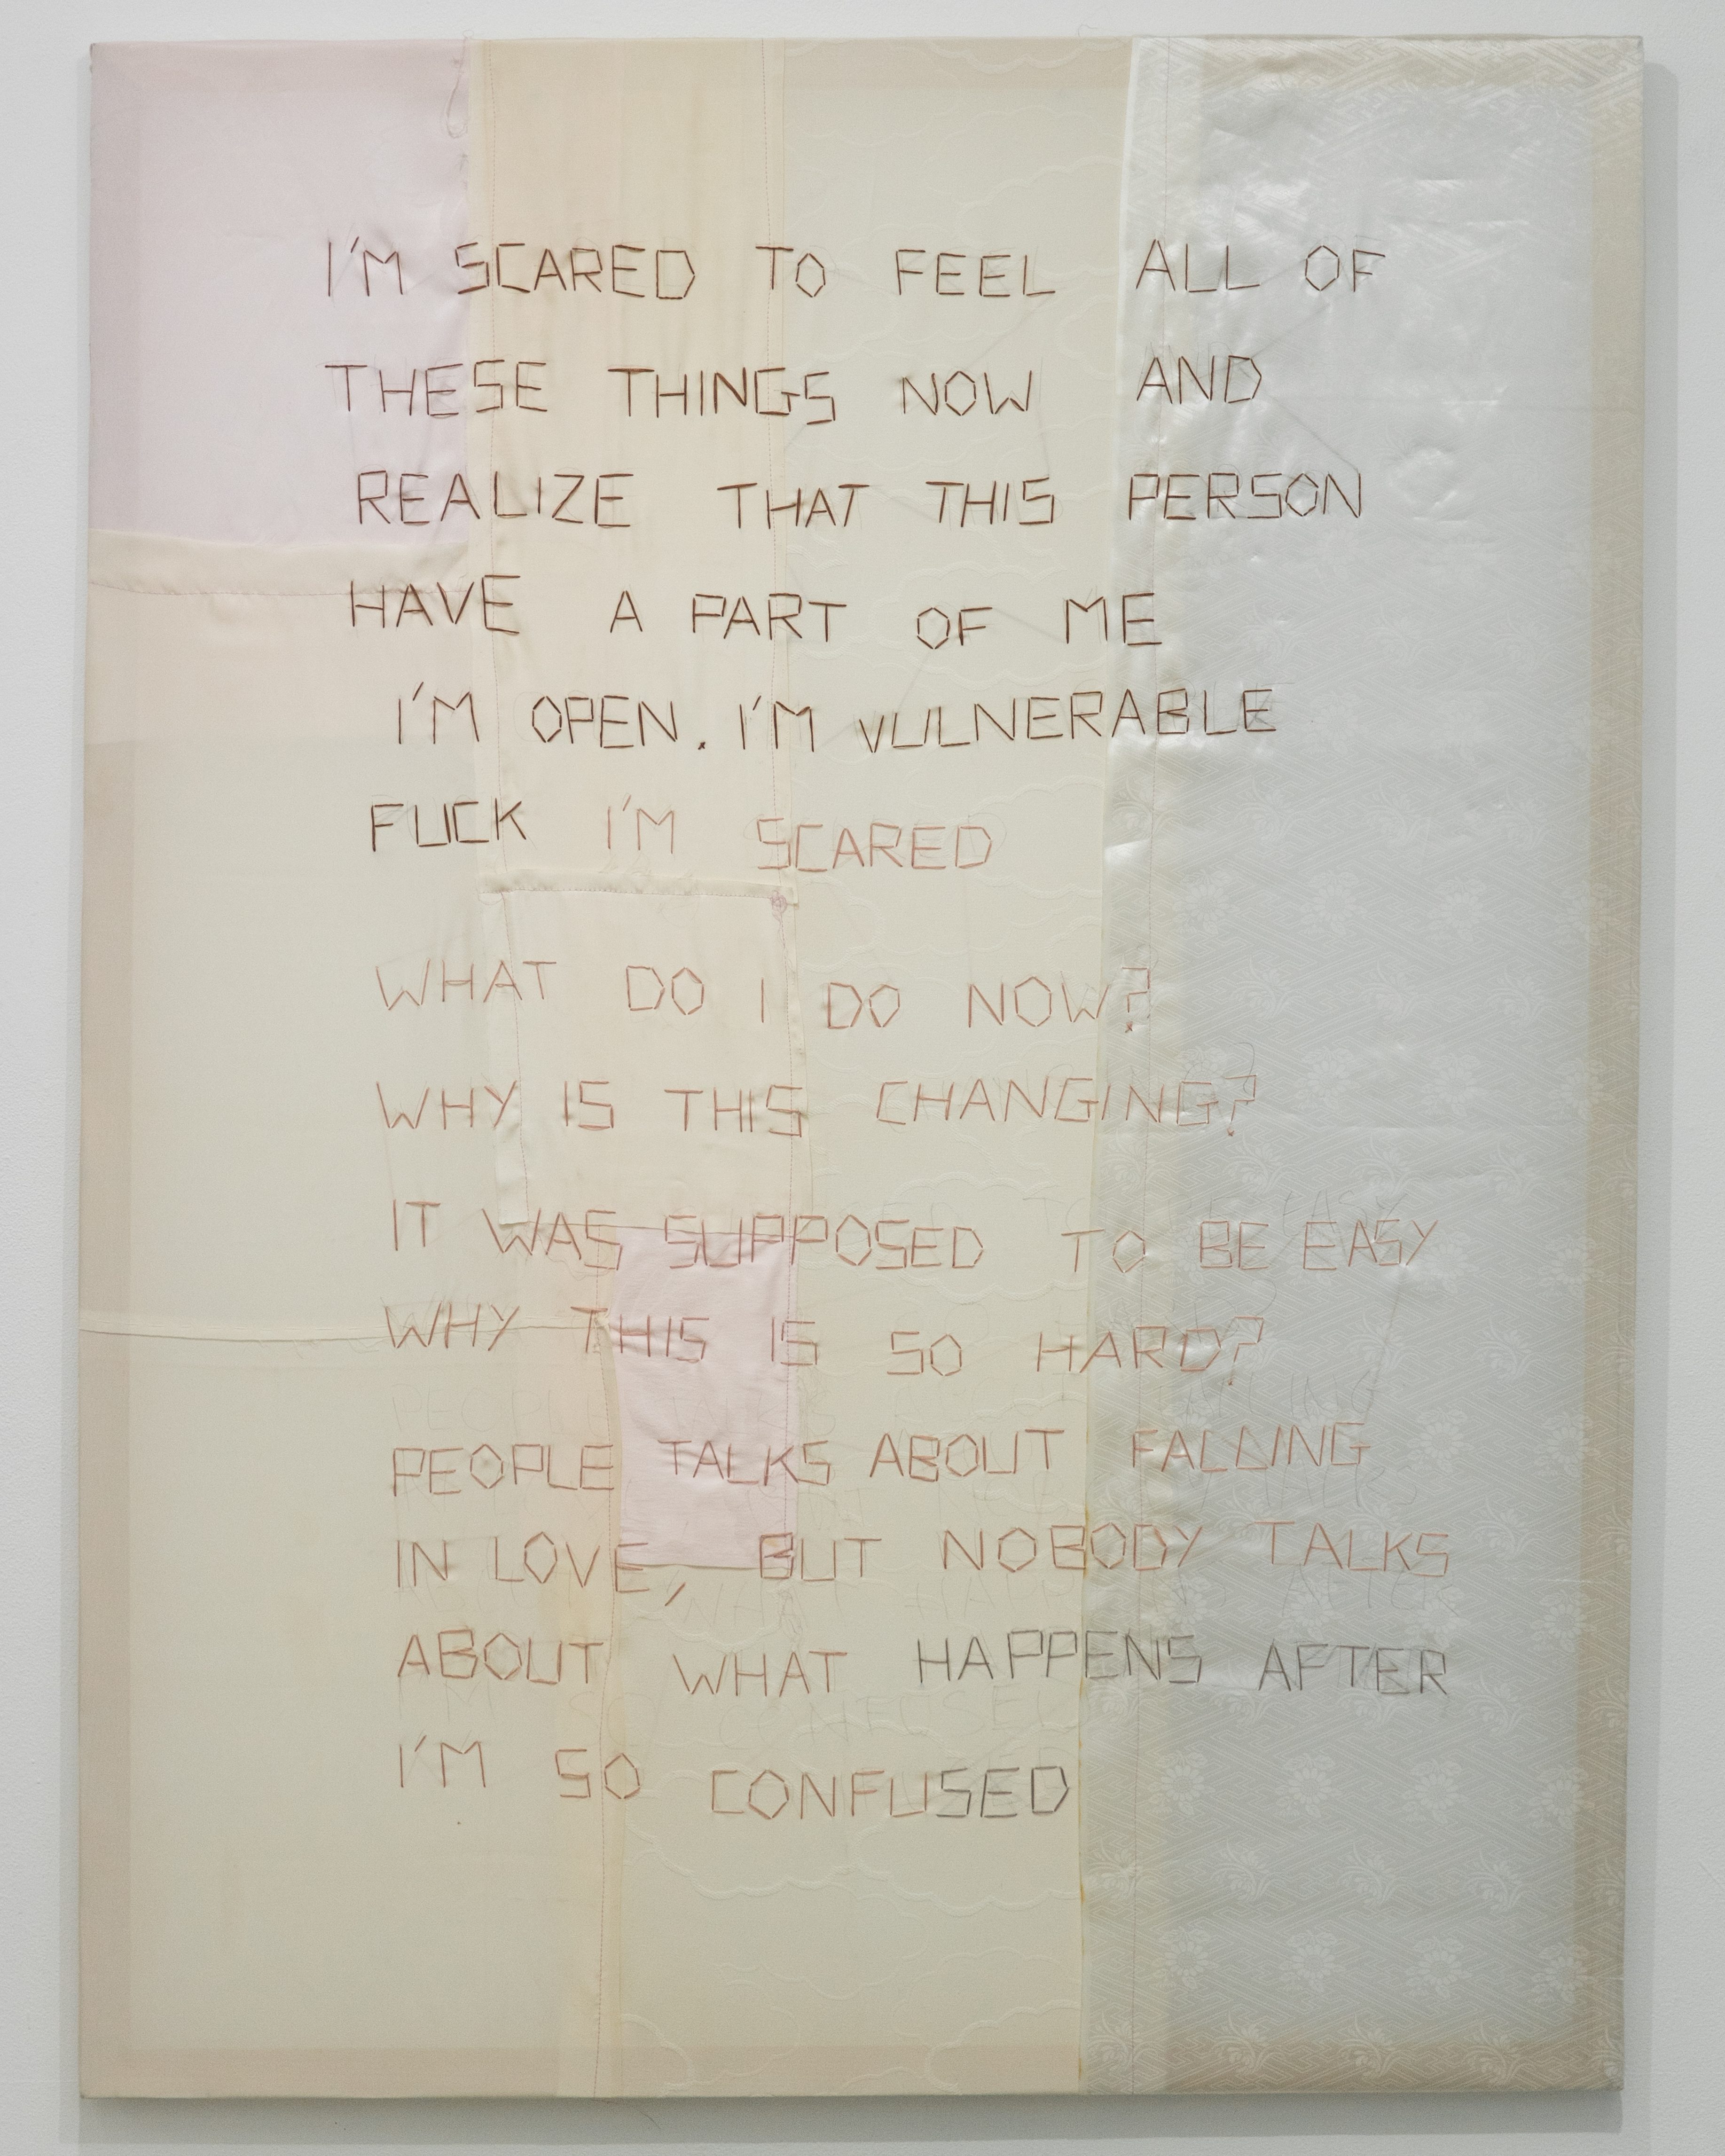 I'M SCARED TO FEEL ALL OF
THESE THINGS NOW AND
REALIZE THAT THIS PERSON
HAVE A PART OF ME
I'M OPEN. I'M VULNERABLE
FUCK I'M SCARED
WHAT DO I DO NOW?
WHY IS THIS CHANGING?
IT WAS SUPPOSED TO BE EASY
WHY THIS IS SO HARD?
PEOPLE TALKS ABOUT FALLING
IN LOVE, BUT NOBODY TALKS
ABOUT WHAT HAPPENS AFTER
I'M SO CONFUSED